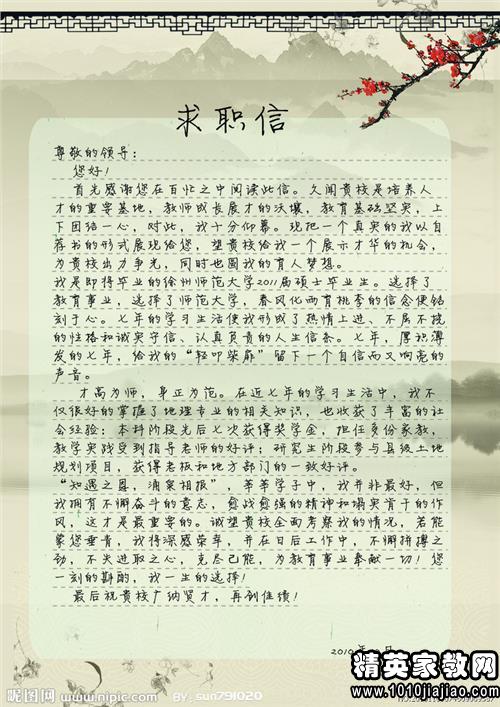 求职信
尊敬的领导：
您好！
首先感谢您在百忙之中阅读此信。久闻贵校是培养人
才的重要基地，教师成长展才的沃壤，教育基础坚实，上
下团结一心，对此，我十分仰慕。现把一个真实的我以自
荐书的形式展现给您，望贵校给我一个展示才华的机会，
为贵校出力争光，同时也圆我的育人梦想。
我是即将毕业的徐州师范大学2011届硕士毕业生。选择了
教育事业，选择了师范大学，春风化雨育桃李的信念便铭
刻于心。七年的学习生活使我形成了热情上进、不屈不挠
的性格和诚实守信、认真负责的人生信条。七年，厚积薄
发的七年，给我的“轻叩柴扉”留下一个自信而又响亮的
声音。
才高为师，身正为范。在近七年的学习生活中，我不
仅很好的掌握了地理专业的相关知识，也收获了丰富的社
会经验：本科阶段先后七次获得奖学金，担任多份家教，
教学实践受到指导老师的好评；研究生阶段参与县级土地
规划项目，获得老板和地方部门的一致好评。
“知遇之恩，涌泉相报”，莘莘学子中，我并非最好，但
我拥有不懈奋斗的意志，愈战愈强的精神和塌实肯干的作
风，这才是最重要的。诚望贵校全面考察我的情况，若能
蒙您垂青，我将深感荣幸，并在日后工作中，不懈拼搏之
劲，不失进取之心，克尽己能，为教育事业奉献一切！您
一刻的斟酌，我一生的选择！
最后祝贵校广纳贤才，再创佳绩！
2010年
精英家教网
www.1010jiajiao.com
昵图网 www.nipic.com BY: sun791020